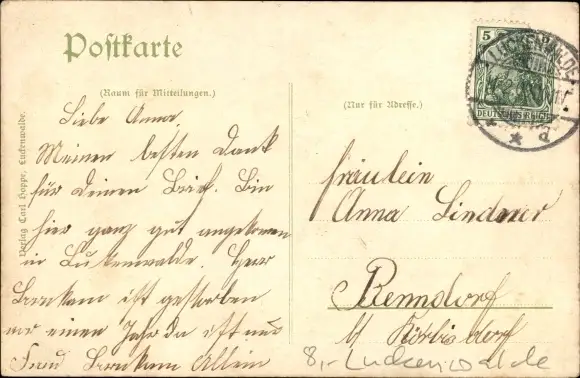 Postkarte
(Raum für Mitteilungen.)
(Nur für Adresse.)
5
DEUTSCHES REICH
LUCKENWALDE
Verlag Carl Hoppe, Luckenwalde.
Liebe Anna.
Meinen besten Dank
für Deinen Brief. Bin
hier ganz gut angekomen
in Lukenwalde. Herr
ist gestorben
vor einen Jahr da ist nur
Frau Allein
Fräulein
Anna Lindner
Renndorf
8,- Luckenwalde